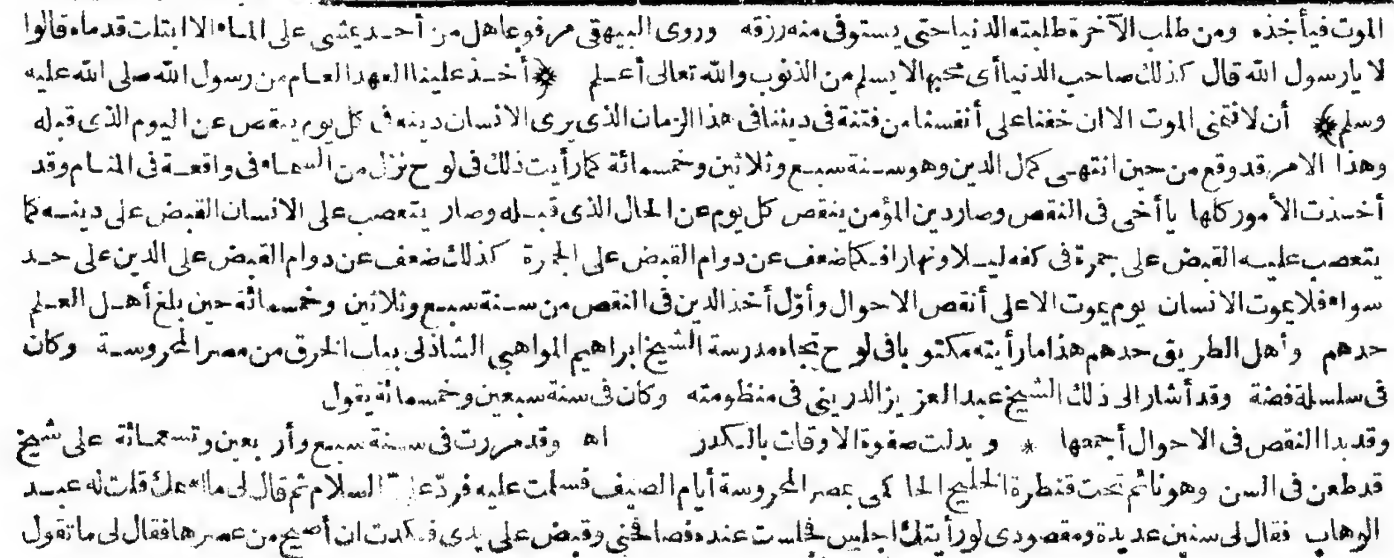 الموت فيأخذه ومن طلب الآخرة طلبته الدنيا حتى يستوفى منه رزقه وروى البيهقى مرفوعا هل من أحد يمشى على الماء الا ابتلت قدماه قالوا
لا يارسول الله قال كذلك صاحب الدنيا أى محبها لا يسلم من الذنوب والله تعالى أعلم ﴿أخذ علينا العهد العام من رسول الله صلى الله عليه
وسلم﴾ أن لا نتمنى الموت الا ان خفنا على أنفسنا من فتنة فى ديننا فى هذا الزمان الذى يرى الانسان دينه فى كل يوم ينقص عن اليوم الذى قبله
وهذا الامر قد وقع من حين انتهى كمال الدين وهو سنة سبع وثلاثين وخمسمائة كما رأيت ذلك فى لوح نزل من السماء فى واقعة فى المنام وقد
أخذت الأمور كلها يا أخى فى النقص وصار دين المؤمن ينقص كل يوم عن الحال الذى قبله وصار يتعصب على الانسان القبض على دينه كما
يتعصب عليه القبض على جمرة فى كفه ليلا ونهارا فكما ضعف عن دوام القبض على الجمرة كذلك ضعف عن دوام القبض على الدين على حد
سواء فلا يموت الانسان يوم يموت الا على أنقص الاحوال وأول أخذ الدين فى النقص من سنة سبع وثلاثين وخمسمائة حين بلغ أهل العلم
حدهم وأهل الطريق حدهم هذا ما رأيته مكتوبا فى لوح تجاه مدرسة الشيخ ابراهيم المواهبى الشاذلى بباب الخرق من مصر المحروسة وكان
فى سلسلة فضة وقد أشار الى ذلك الشيخ عبد العزيز الدرينى فى منظومته وكان فى سنة سبعين وخمسمائة يقول
وقد بدا النقص فى الاحوال أجمعها * وبدلت صفوة الاوقات بالكدر اه وقد مررت فى سنة سبع وأربعين وتسعمائة على شيخ
قد طعن فى السن وهو نائم تحت قنطرة الخليج الحاكمى بمصر المحروسة أيام الصيف فسلمت عليه فرد على السلام ثم قال لى ما اسمك قلت له عبد
الوهاب فقال لى سنين عديدة ومقصودى لو رأيتك اجلس فجلست عنده فصافحنى وقبض على يدى فكدت ان أصيح من عصرها فقال لى ما تقول